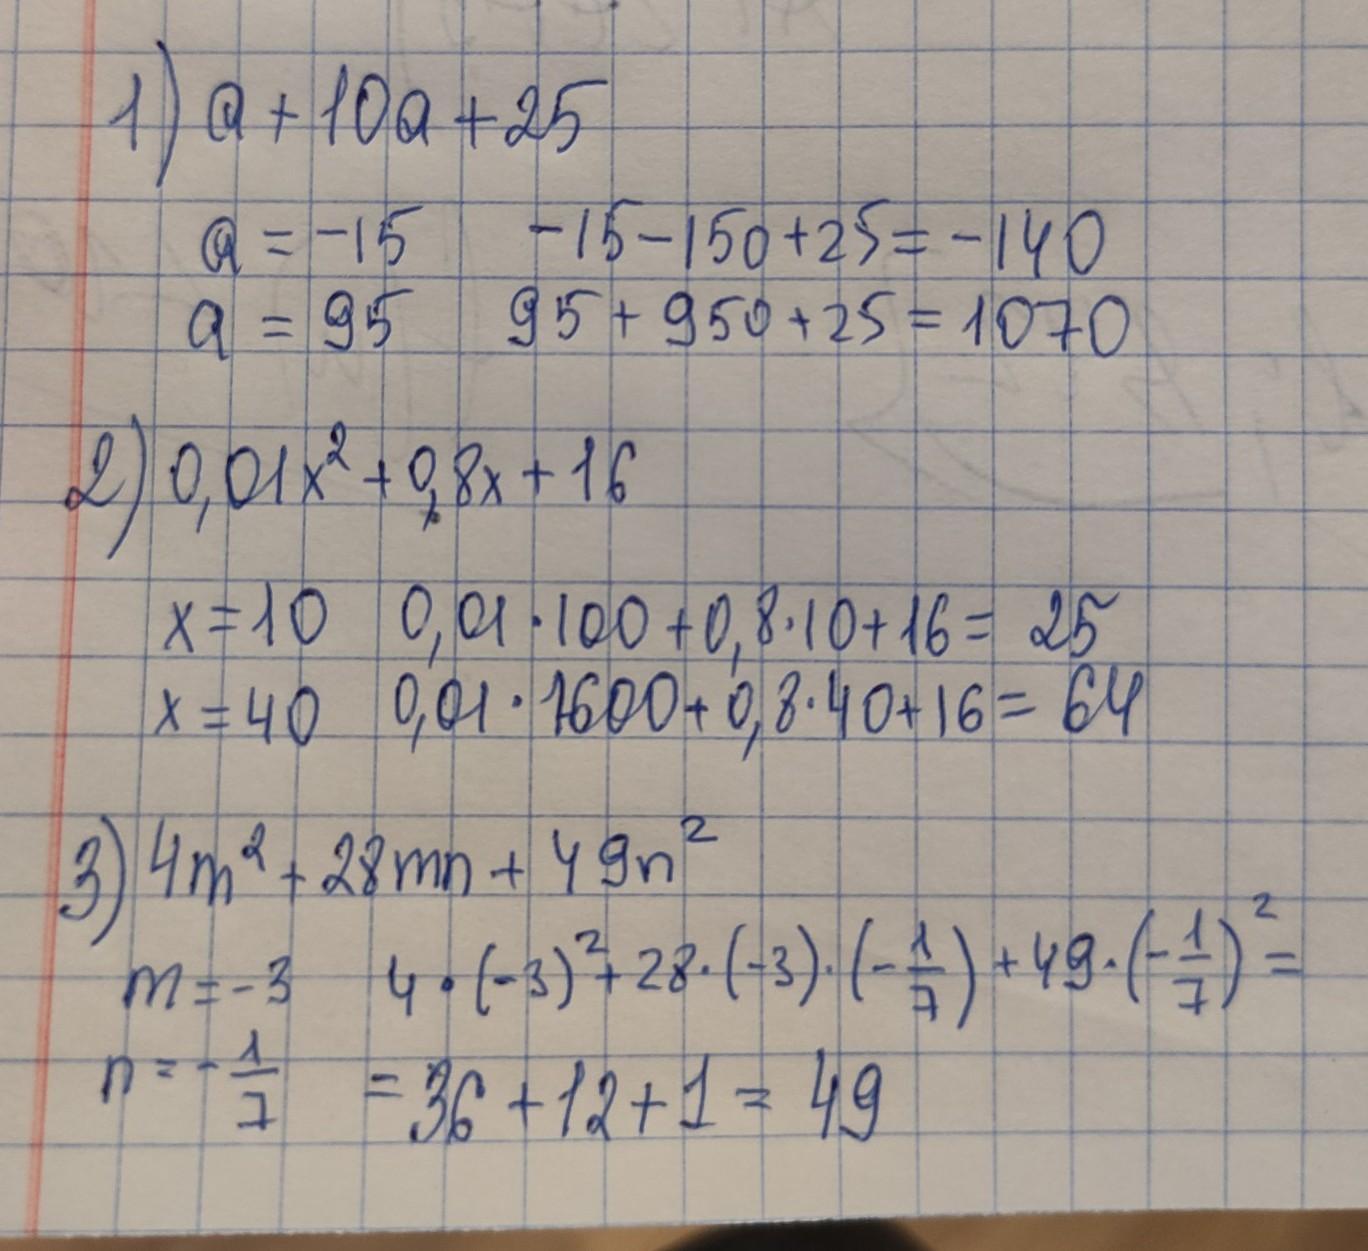 1) a + 10a + 25
a = -15 -15 - 150 + 25 = -140
a = 95 95 + 950 + 25 = 1070
2) 0,01x² + 0,8x + 16
x = 10 0,01 · 100 + 0,8 · 10 + 16 = 25
x = 40 0,01 · 1600 + 0,8 · 40 + 16 = 64
3) 4m² + 28mn + 49n²
m = -3 4 · (-3)² + 28 · (-3) · (-1/7) + 49 · (-1/7)² =
n = -1/7 = 36 + 12 + 1 = 49